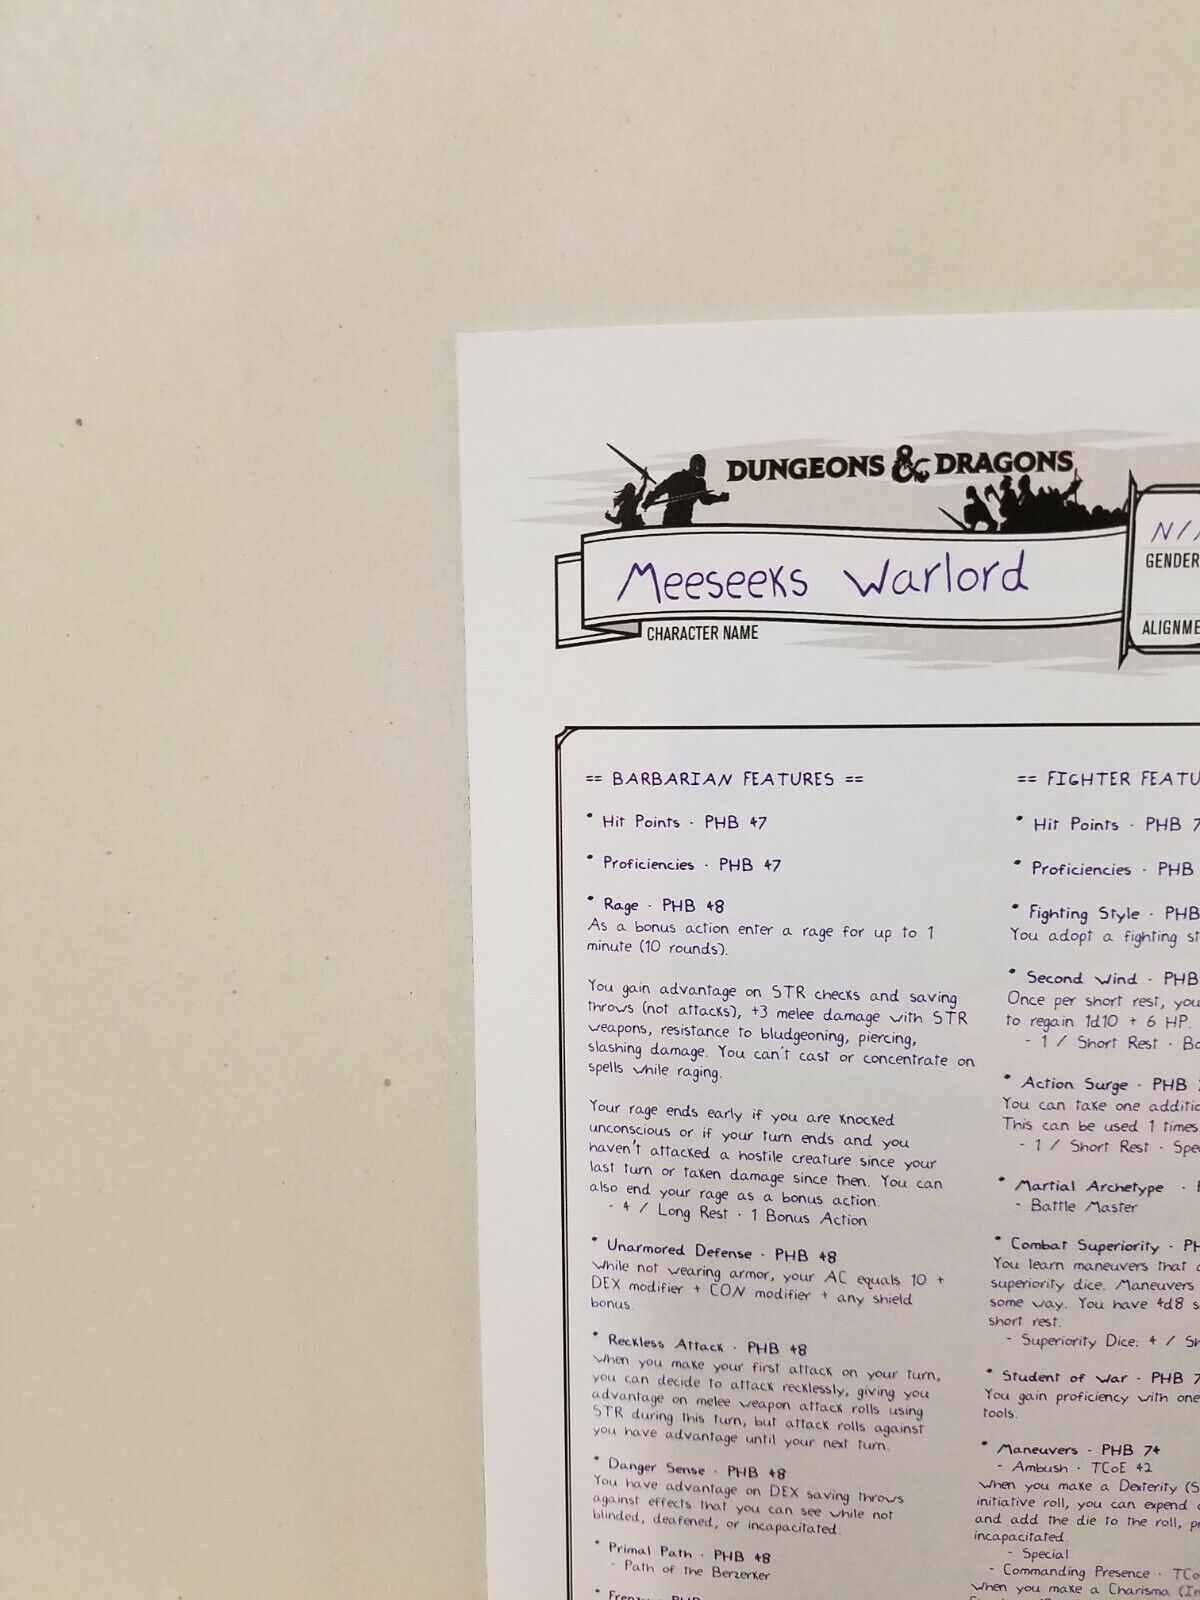 DUNGEONS & DRAGONS
Meeseeks Warlord
CHARACTER NAME
GENDER
ALIGNME
== BARBARIAN FEATURES ==
* Hit Points · PHB 47
* Proficiencies · PHB 47
* Rage · PHB 48
As a bonus action enter a rage for up to 1
minute (10 rounds).
You gain advantage on STR checks and saving
throws (not attacks), +3 melee damage with STR
weapons, resistance to bludgeoning, piercing,
slashing damage. You can't cast or concentrate on
spells while raging.
Your rage ends early if you are knocked
unconscious or if your turn ends and you
haven't attacked a hostile creature since your
last turn or taken damage since then. You can
also end your rage as a bonus action.
- 4 / Long Rest · 1 Bonus Action
* Unarmored Defense · PHB 48
While not wearing armor, your AC equals 10 +
DEX modifier + CON modifier + any shield
bonus.
* Reckless Attack · PHB 48
When you make your first attack on your turn,
you can decide to attack recklessly, giving you
advantage on melee weapon attack rolls using
STR during this turn, but attack rolls against
you have advantage until your next turn.
* Danger Sense · PHB 48
You have advantage on DEX saving throws
against effects that you can see while not
blinded, deafened, or incapacitated.
* Primal Path · PHB 48
- Path of the Berzerker
== FIGHTER FEATU
* Hit Points · PHB 7
* Proficiencies · PHB
* Fighting Style · PHB
You adopt a fighting st
* Second Wind · PHB
Once per short rest, you
to regain 1d10 + 6 HP.
- 1 / Short Rest · Bo
* Action Surge · PHB
You can take one additio
This can be used 1 times
- 1 / Short Rest · Spe
* Martial Archetype ·
- Battle Master
* Combat Superiority · PH
You learn maneuvers that
superiority dice. Maneuvers
some way. You have 4d8 s
short rest.
- Superiority Dice: 4 / Sh
* Student of War · PHB 7
You gain proficiency with one
tools.
* Maneuvers · PHB 74
- Ambush · TCoE 42
When you make a Dexterity (S
initiative roll, you can expend
and add the die to the roll, pr
incapacitated.
- Special
- Commanding Presence · TCo
When you make a Charisma (In